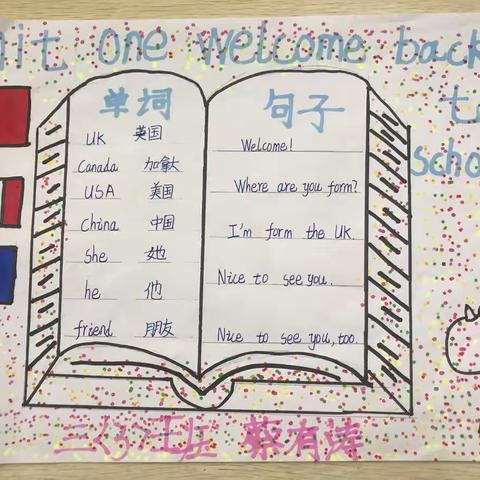 nit One Welcome back
t
Scho
单词
UK 英国
Canada 加拿大
USA 美国
China 中国
she 她
he 他
friend 朋友
句子
Welcome!
Where are you form?
I'm form the UK.
Nice to see you.
Nice to see you, too.
三〈3〉班 蔡有涛